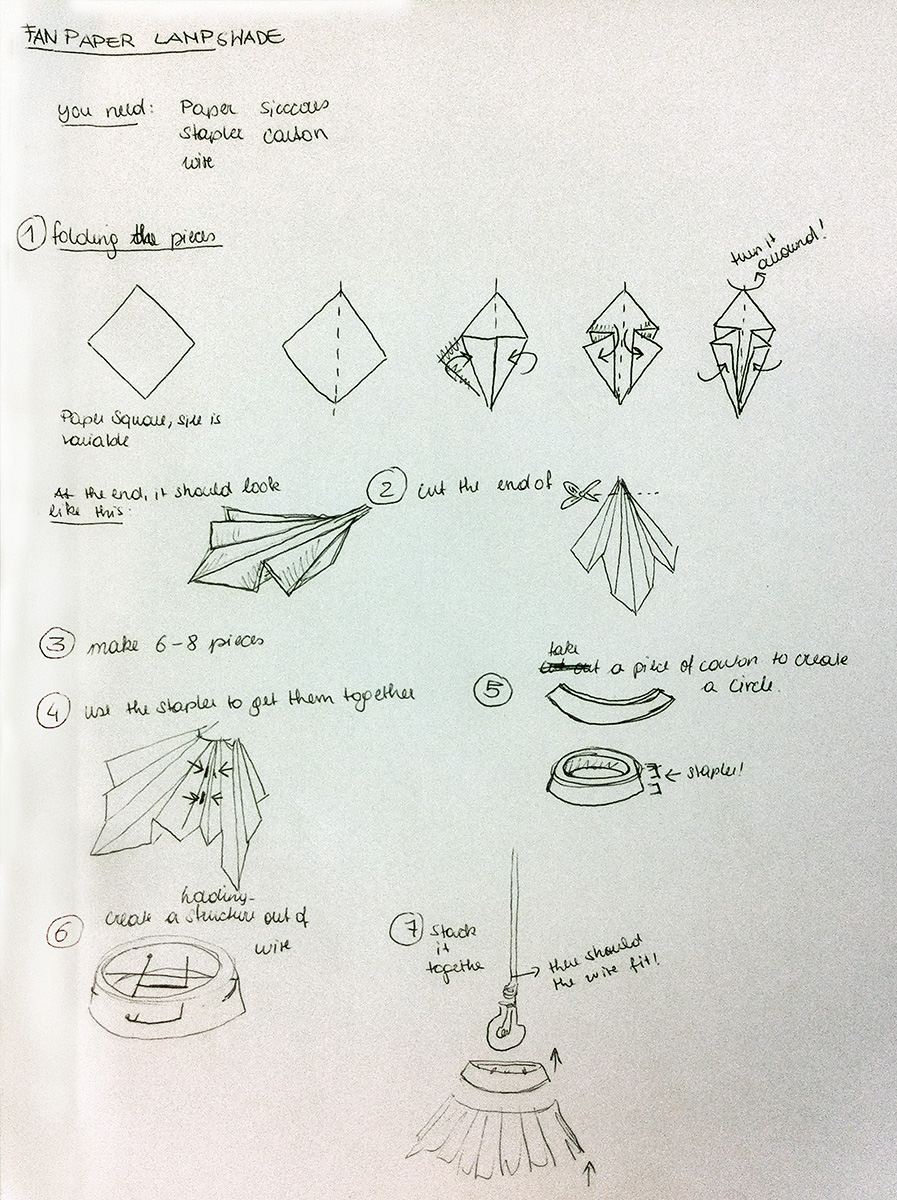 FAN PAPER LAMPSHADE
you need: Paper siccors
stapler carton
wire
1 folding the pieces
turn it
around!
Paper Square, size is
variable
At the end, it should look
like this:
2 cut the end of
3 make 6-8 pieces
4 use the stapler to get them together
take
5 a piece of carton to create
a circle.
← stapler!
6 create a structure out of
wire
7 stack
it
togethe
→ there should
the wire fit!